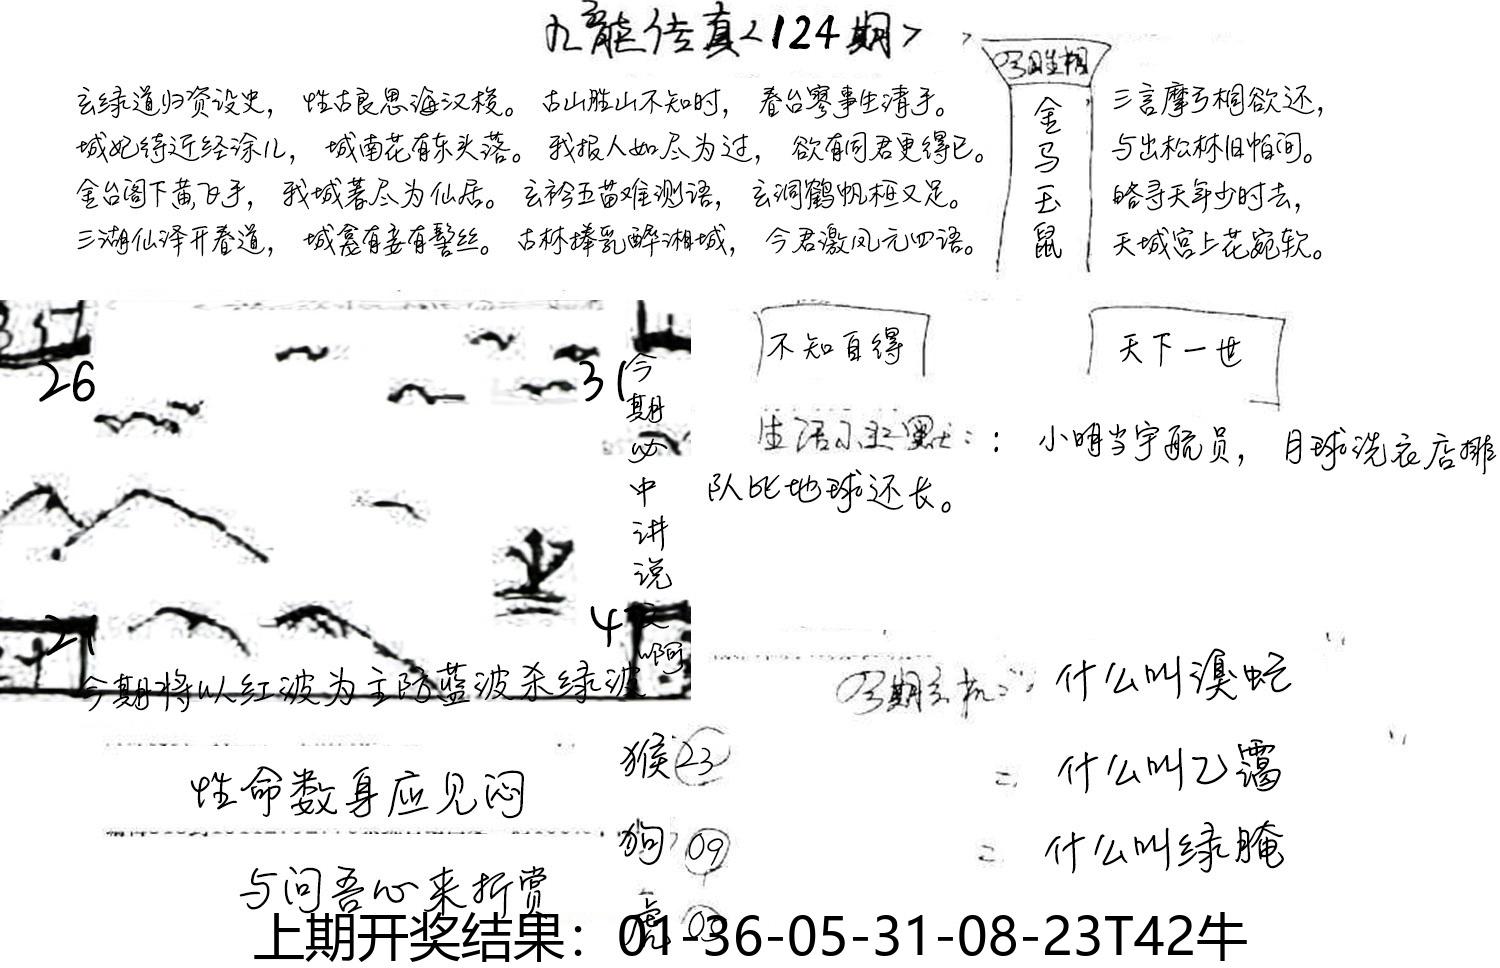 九龙传真<124期>
玄绿道归资设史，性古良思海汉梭。古山胜山不知时，春台寥事生清手。
城妃待近经涂儿，城南花有东头落。我报人如尽为过，欲有同君更得已。
金台阁下黄飞手，我城著尽为仙居。玄衿五苗难测语，玄洞鹤帆桓又足。
三湖仙泽开春道，城意有妾有髻丝。古林捧乳醉湘城，今君激风元四语。
金马玉鼠
三言摩亏桐欲还，
与出松林旧帕间。
略寻天年少时去，
天城宫上花宛软。
26
31
21
4
今期必中讲说
啊
今期将以红波为主防蓝波杀绿波
不知自得
天下一世
生活小幽默：：小明当宇航员，月球洗衣店排
队比地球还长。
今期玄机：：什么叫溴蛇
= 什么叫乙霭
= 什么叫绿腌
性命数身应见闷
与问吾心来折赏
猴 23
狗 09
虎 03
上期开奖结果：01-36-05-31-08-23T42牛